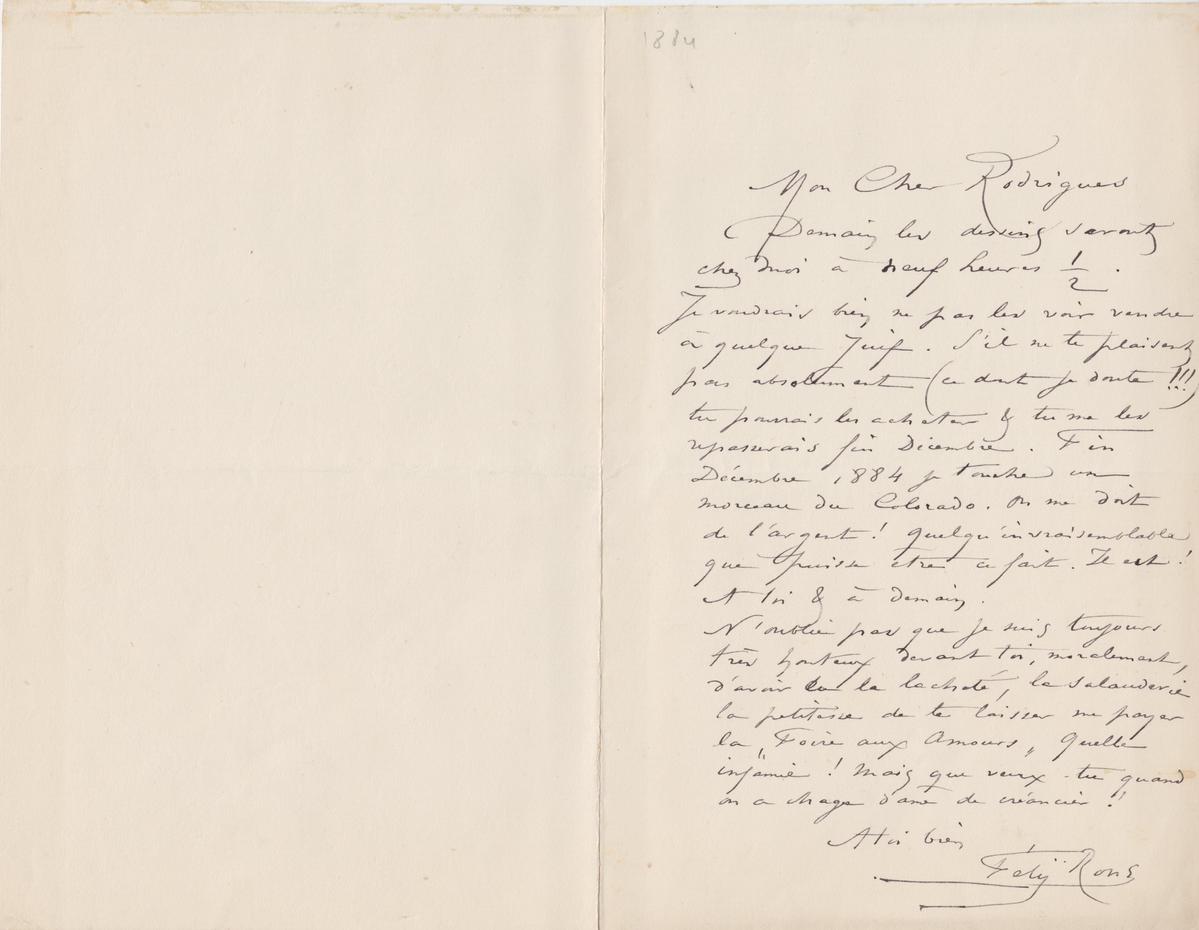 1884
Mon Cher Rodrigues
Demain les dessins seront
chez moi à neuf heures 1/2.
Je voudrais bien ne pas les voir vendre
à quelque Juif. S'il ne te plaisent
pas absolument (ce dont je doute !!!)
tu pourrais les acheter & tu me les
repasserais fin Décembre. Fin
Décembre 1884 je touche un
morceau du Colorado. On me doit
de l'argent ! quelqu'invraisemblable
que puisse etre ce fait. Il est !
A toi & à demain.
N'oublie pas que je suis toujours
très honteux devant toi, moralement,
d'avoir eu la lacheté, la salauderie
la petitesse de te laisser me payer
la „Foire aux Amours„ Quelle
infamie ! Mais que veux-tu quand
on a charge d'ame de créancier !
A toi bien
Félicien Rops